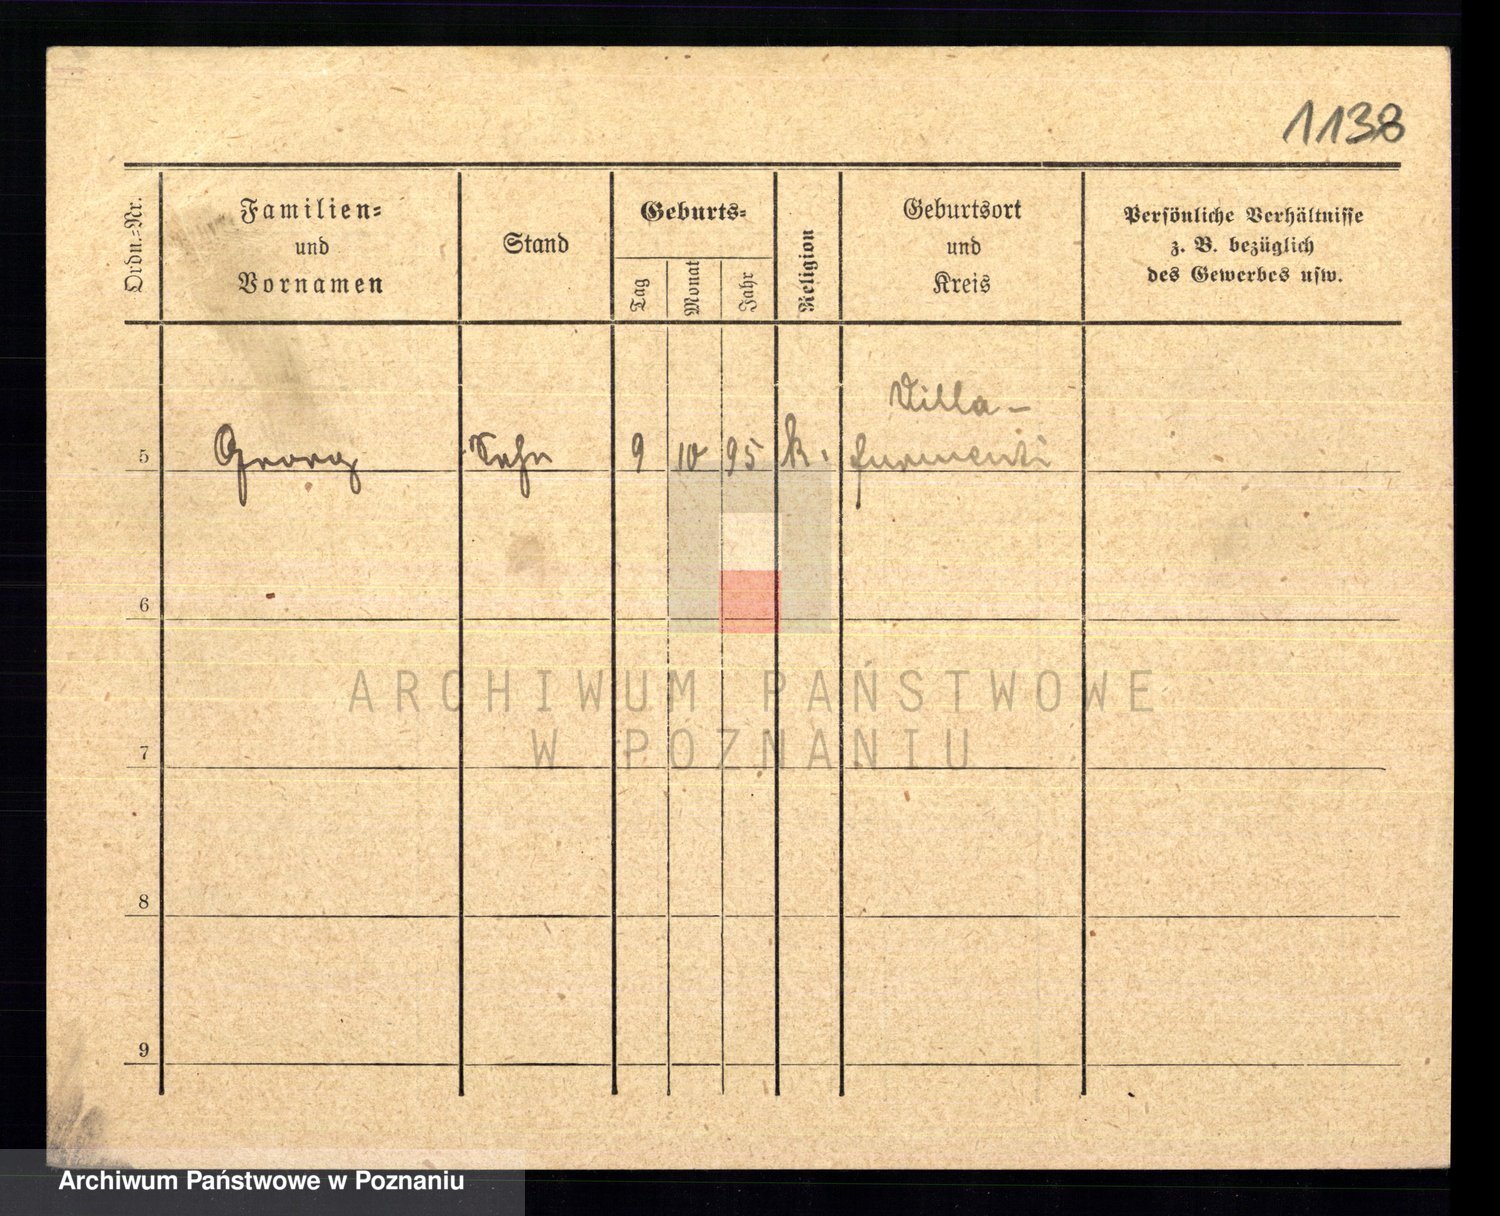 1138
Ordn.-Nr.
Familien-
und
Vornamen
Stand
Geburts-
Tag
Monat
Jahr
Religion
Geburtsort
und
Kreis
Persönliche Verhältnisse
z. B. bezüglich
des Gewerbes usw.
Villa-
5 Georg Sohn 9 10 95 k. furmenti
6
7
8
9
ARCHIWUM PAŃSTWOWE
W POZNANIU
Archiwum Państwowe w Poznaniu